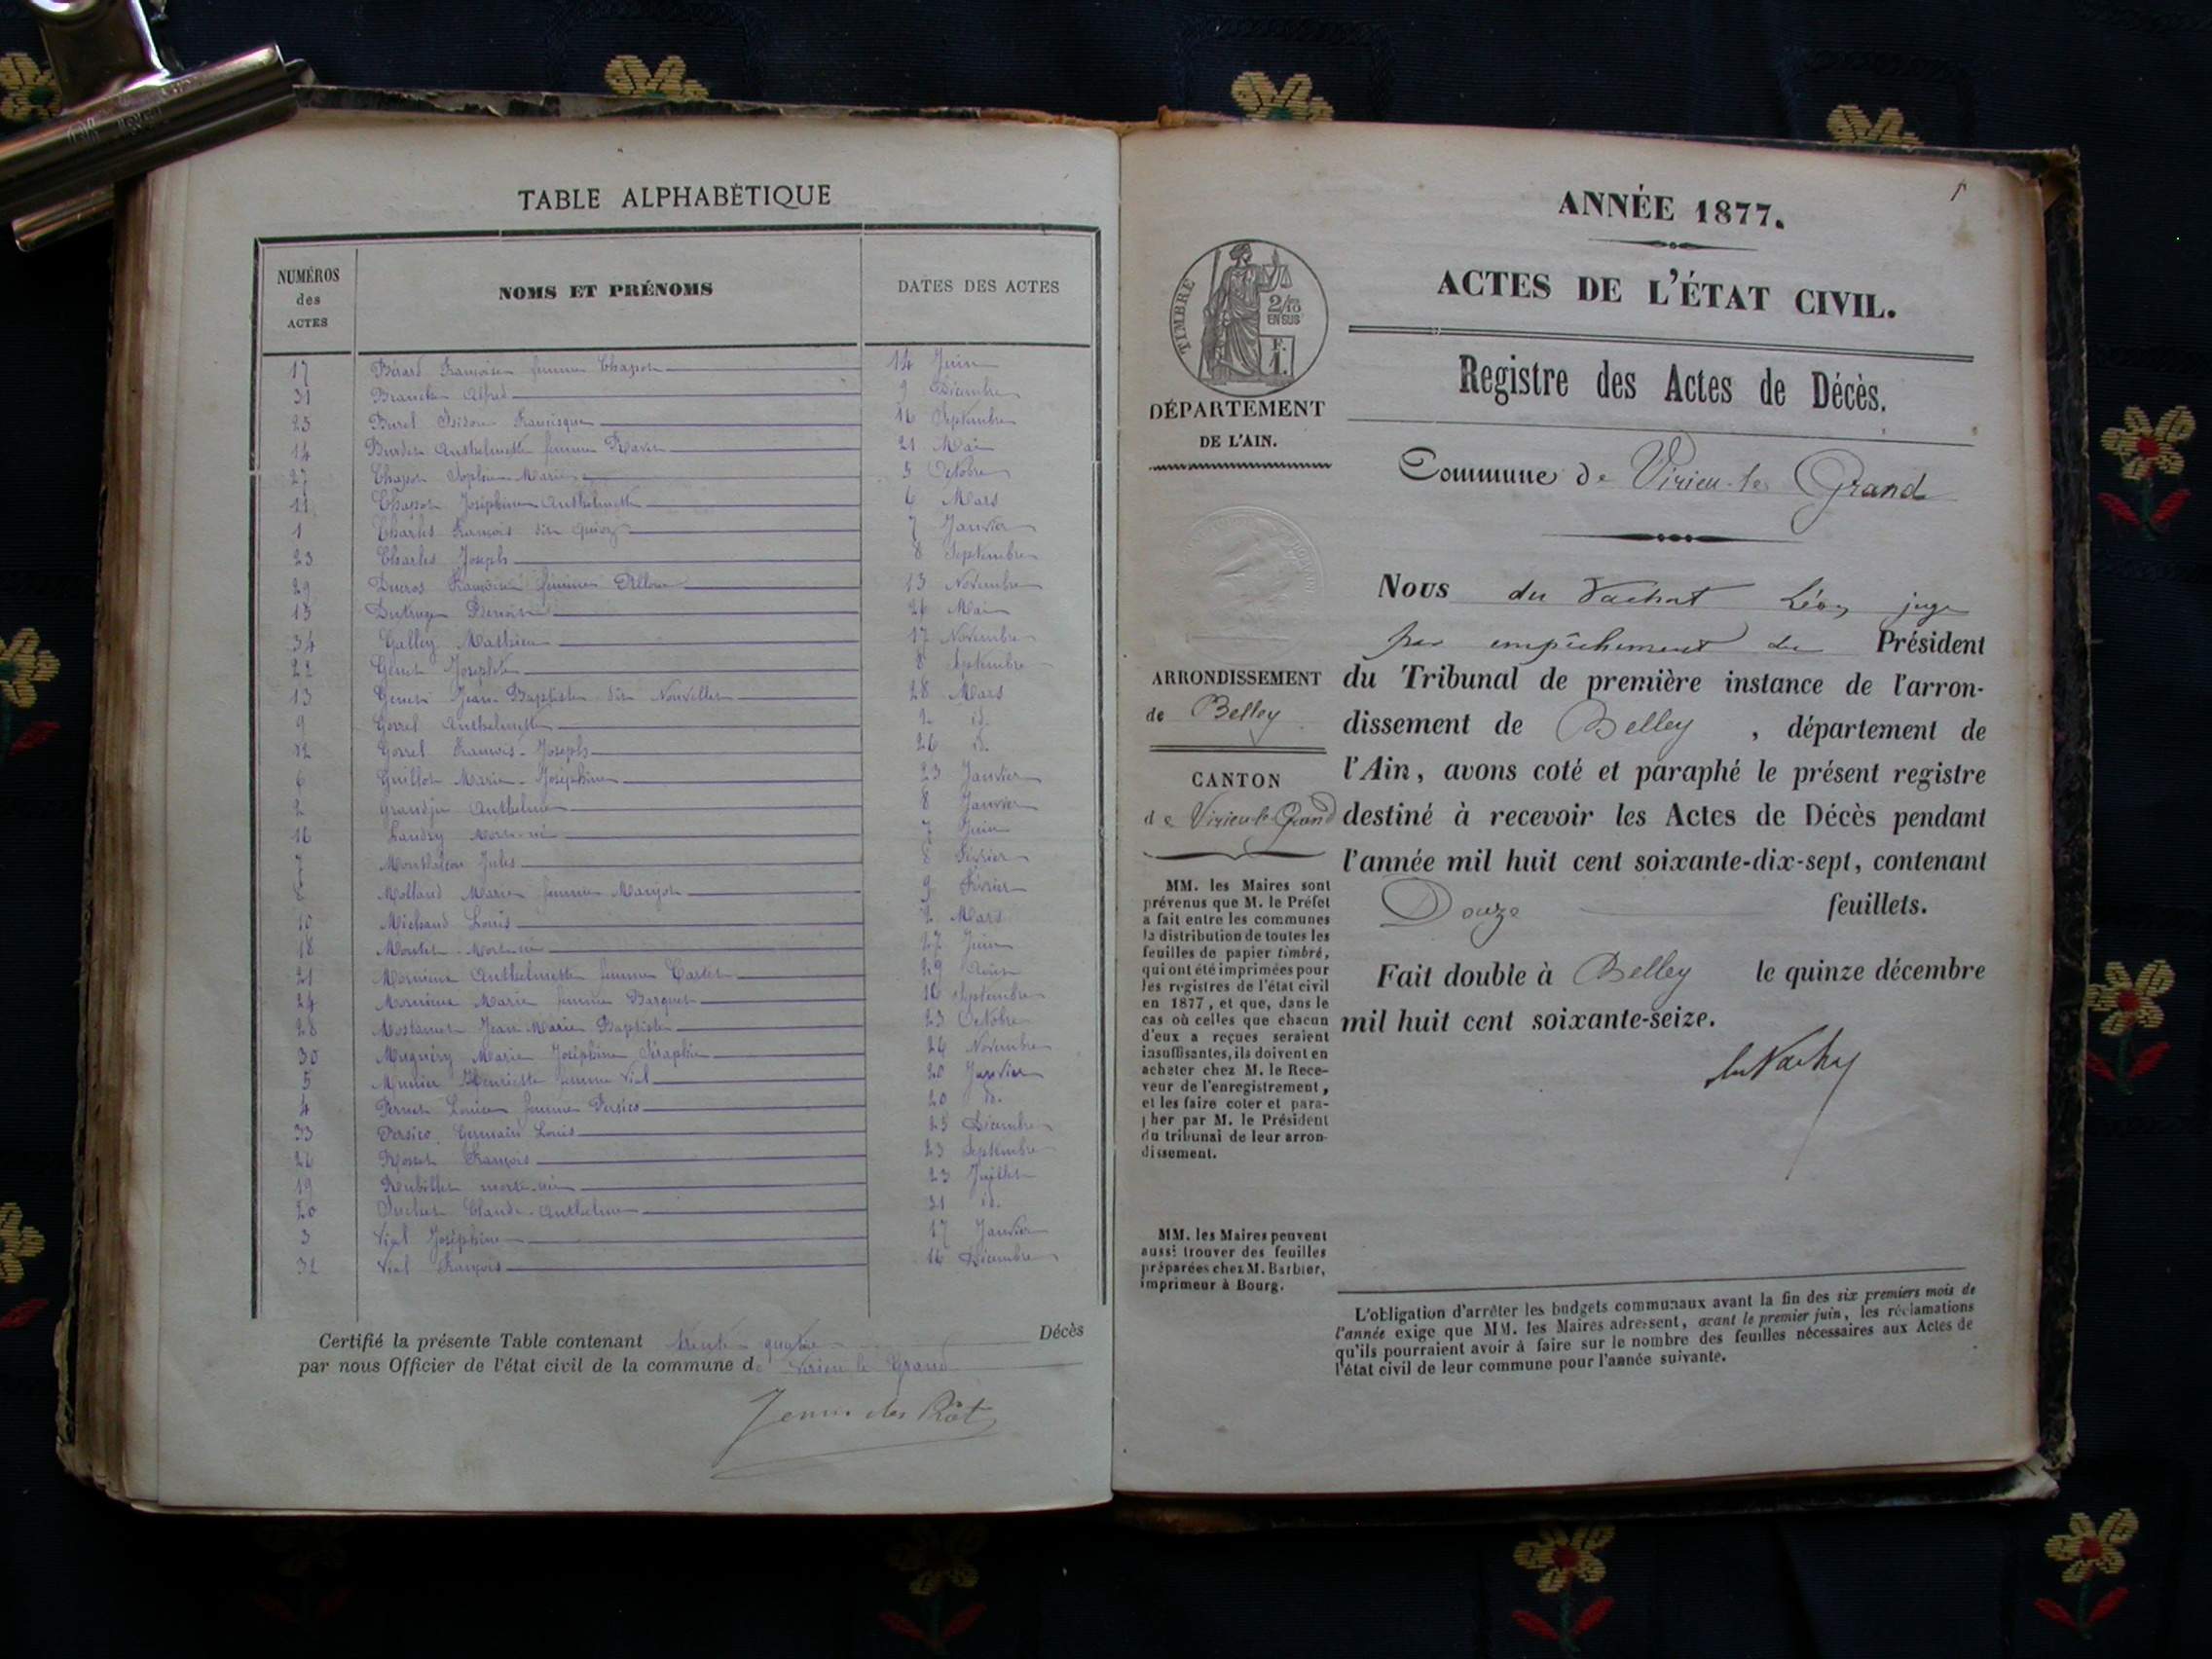 TABLE ALPHABÉTIQUE
NUMÉROS des ACTES
NOMS ET PRÉNOMS
DATES DES ACTES
17 Bérard Françoise femme Chapot 14 Juin
31 Alfred 9 Décembre
25 Burel Isidore Francisque 16 Septembre
14 Anthelmette femme 21 Mai
27 Chapot Marie 5 Octobre
11 Chapot Joséphine Anthelmette 6 Mars
1 Charles François dit 7 Janvier
23 Charles Joseph 8 Septembre
29 Ducros Françoise femme 13 Novembre
15 26 Mai
34 Galley Mathieu 17 Novembre
22 Josephte 8 Septembre
13 Jean-Baptiste dit Nouvelles 28 Mars
9 Gorrel Anthelmette 2 id.
12 Gorrel François-Joseph 26 id.
6 Guillot Marie-Joséphine 23 Janvier
2 Anthelme 8 Janvier
16 Landry mort-né 7 Juin
7 Jules 8 Février
8 Molland Marie femme 9 Février
10 Michaud Louis 2 Mars
18 mort-né 27 Juin
21 Anthelmette femme 29 Août
24 Marie femme 16 Septembre
28 Jean Marie Baptiste 23 Octobre
30 Marie Joséphine Séraphie 24 Novembre
5 Henriette femme Vial 20 Janvier
4 Pernet Louise femme Persico 20 id.
33 Persico Germain Louis 25 Décembre
26 François 23 Septembre
19 mort-né 23 Juillet
20 Claude-Anthelme 31 id.
3 Vial Joséphine 17 Janvier
32 Vial François 16 Décembre
Certifié la présente Table contenant trente quatre Décès
par nous Officier de l'état civil de la commune de Virieu le Grand
1
ANNÉE 1877.
ACTES DE L'ÉTAT CIVIL.
Registre des Actes de Décès.
Commune de Virieu-le-Grand
TIMBRE
2/10
EN SUS
F.
1.
DÉPARTEMENT
DE L'AIN.
ARRONDISSEMENT
de Belley
CANTON
de Virieu-le-Grand
MM. les Maires sont
prévenus que M. le Préfet
a fait entre les communes
la distribution de toutes les
feuilles de papier timbré,
qui ont été imprimées pour
les registres de l'état civil
en 1877, et que, dans le
cas où celles que chacun
d'eux a reçues seraient
insuffisantes, ils doivent en
acheter chez M. le Rece-
veur de l'enregistrement,
et les faire coter et para-
pher par M. le Président
du tribunal de leur arron-
dissement.
MM. les Maires peuvent
aussi trouver des feuilles
préparées chez M. Barbier,
imprimeur à Bourg.
Nous du Vachat Léon juge
par empêchement du Président
du Tribunal de première instance de l'arron-
dissement de Belley, département de
l'Ain, avons coté et paraphé le présent registre
destiné à recevoir les Actes de Décès pendant
l'année mil huit cent soixante-dix-sept, contenant
Douze feuillets.
Fait double à Belley le quinze décembre
mil huit cent soixante-seize.
du Vachat
L'obligation d'arrêter les budgets communaux avant la fin des six premiers mois de
l'année exige que MM. les Maires adressent, avant le premier juin, les réclamations
qu'ils pourraient avoir à faire sur le nombre des feuilles nécessaires aux Actes de
l'état civil de leur commune pour l'année suivante.